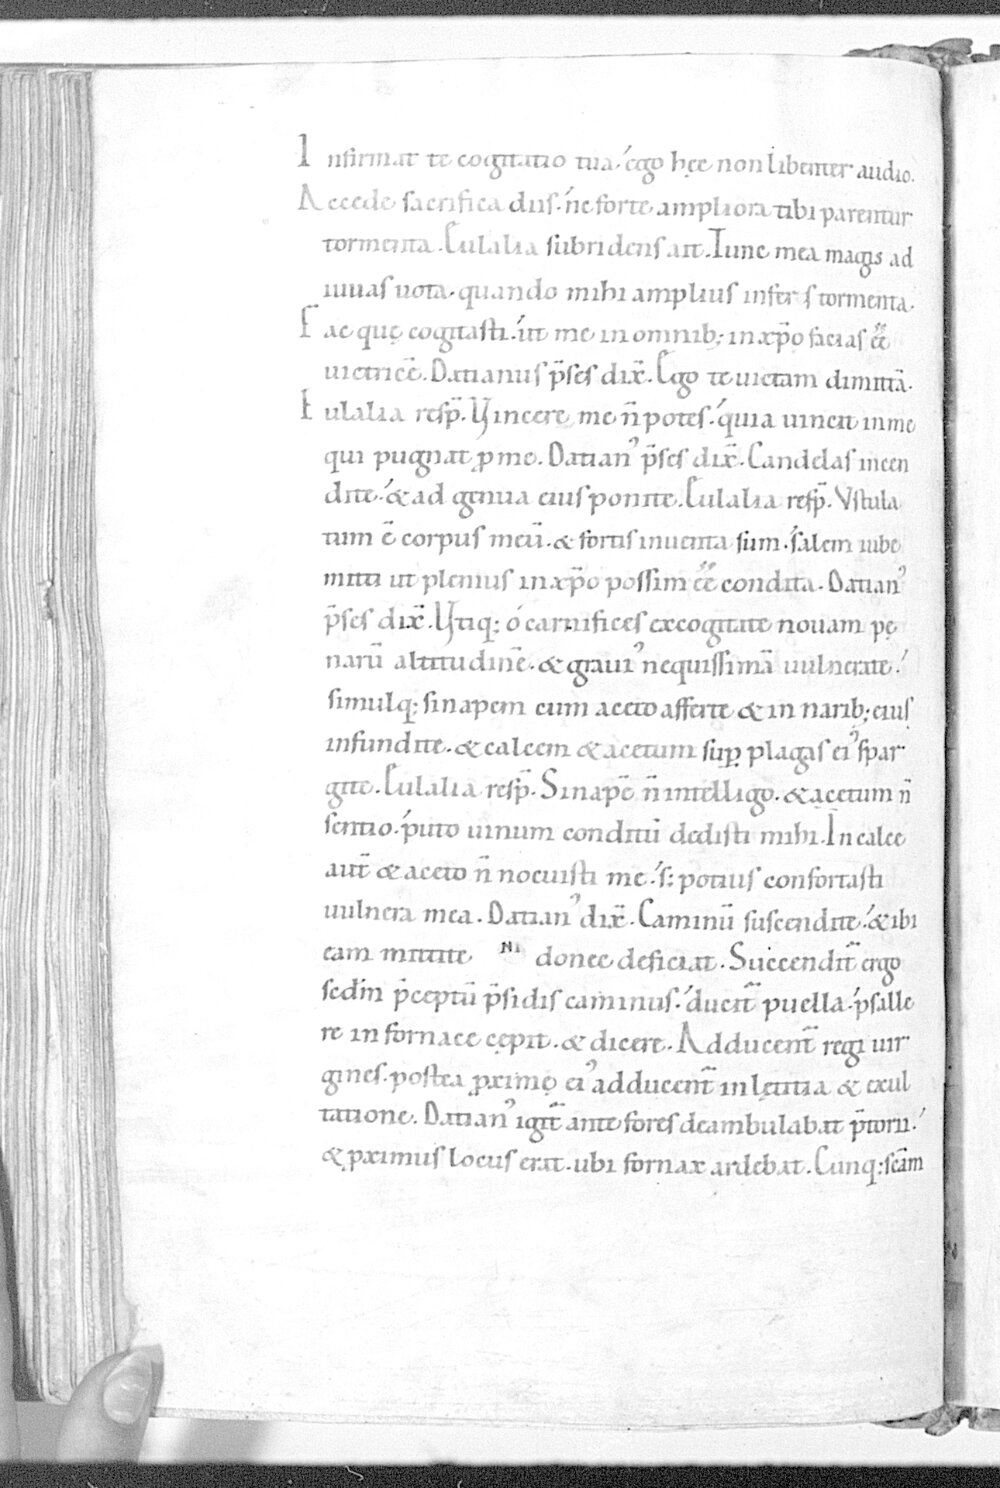 Infirmat te cogitatio tua. ego hęc non libenter audio.
Accede sacrifica diis. ne forte ampliora tibi parentur
tormenta. Eulalia subridens ait. Tunc mea magis ad
iuuas uota. quando mihi amplius infers tormenta.
Fac quę cogitasti. ut me in omnib; in xp̄o facias ēē
uictricē. Datianus p̄ses dix̄. Ego te uictam dimittā.
Eulalia resp̄. Vincere me n̄ potes. quia uincit in me
qui pugnat ꝓ me. Datian᾽ p̄ses dix̄. Candelas incen
dite. & ad genua eius ponite. Eulalia resp̄. Vstula
tum ē corpus meū. & fortis inuenta sum. salem iube
mitti ut plenius in xp̄o possim ēē condita. Datian᾽
p̄ses dix̄. Vtiq; ó carnifices excogitate nouam pę
narū altitudinē. & graui᾽ nequissimā uulnerate.
simulq; sinapem cum aceto afferte & in narib; eius
infundite. & calcem & acetum sup̱ plagas ei᾽ spar
gite. Eulalia resp̄. Sinapē n̄ intelligo. & acetum n̄
sentio. puto uinum conditū dedisti mihi. In calce
aut̄ & aceto n̄ nocuisti me. s; potius confortasti
uulnera mea. Datian᾽ dix̄. Caminū succendite. & ibi
eam mittite NI donec deficiat. Succendit᷑ ergo
sedm̄ p̄ceptū p̄sidis caminus. ducit᷑ puella. psalle
re in fornace cępit. & dicere. Adducent᷑ regi uir
gines. postea ꝓximę ei᾽ adducent᷑ in lętitia & exul
tatione. Datian᾽ igit᷑ ante fores deambulabat p̄torii.
& pximus locus erat. ubi fornax ardebat. Cunq; scām